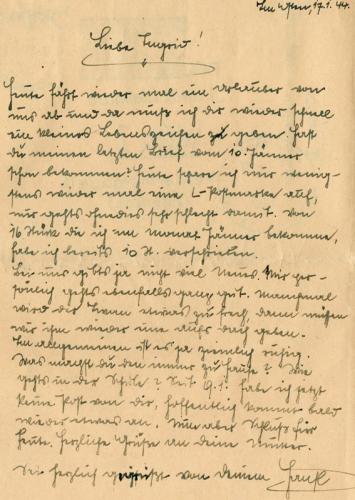 Im Osten, 17.1.44.
Liebe Ingrid!
Heute fährt wieder mal ein Urlauber von
uns ab und da muß ich dir wieder schnell
ein kleines Lebenszeichen zu geben. Hast
du meinen letzten Brief vom 10. Jänner
schon bekommen? Heute spare ich mir wenig-
stens wieder mal eine L-Postmarke auf,
mir gehts ohnedies sehr schlecht damit. Von
16 Stück die ich im Monat Jänner bekomme,
habe ich bereits 10 St. verschrieben.
Bei uns gibts ja nicht viel Neues. Mir per-
sönlich gehts ebenfalls ganz gut. Manchmal
wird der Iwan etwas zu frech, dann müssen
wir ihm wieder eine aufs Dach geben.
Im allgemeinen ist es ja ziemlich ruhig.
Was machst du den immer zu Hause? Wie
gehts in der Schule? Seit 9.1. habe ich jetzt
keine Post von dir, hoffentlich kommt bald
wieder etwas an. Nun aber Schluß für
heute. Herzliche Grüße an deine Mutter.
Sei herzlich gegrüßt von deinem